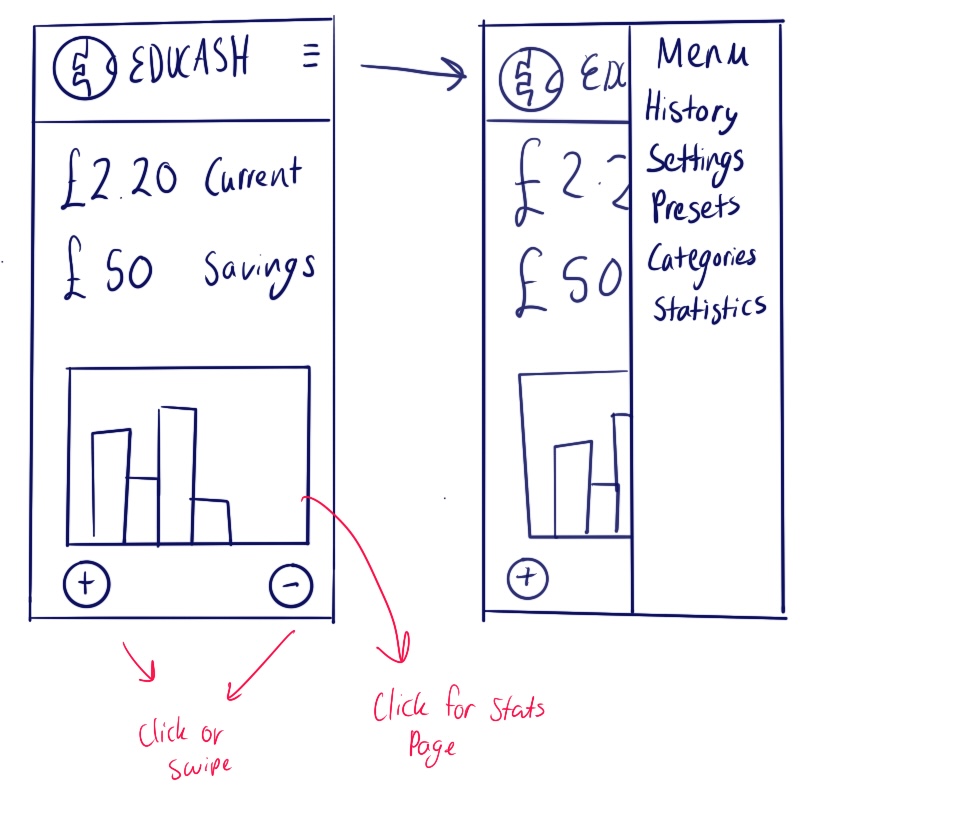 EDUCASH
£2.20 Current
£50 Savings
+
-
Click or
Swipe
Click for Stats
Page
ED
£2.2
£50
+
Menu
History
Settings
Presets
Categories
Statistics